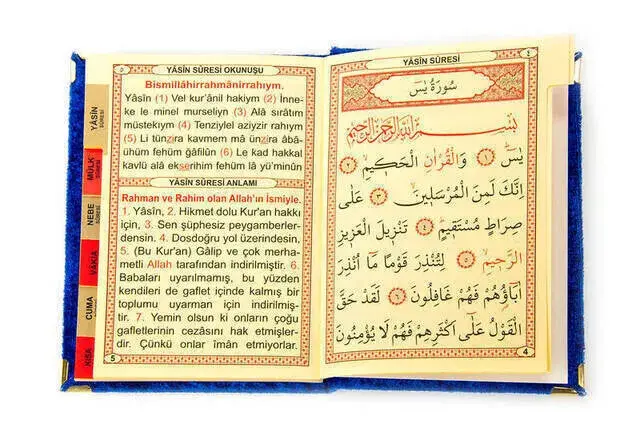 YÂSÎN SÛRESİ OKUNUŞU
٥
Bismillâhirrahmânirrahıym.
Yâsîn (1) Vel kur'ânil hakiym (2) İnne-
ke le minel murseliyn (3) Alâ sırâtım
müstekıym (4) Tenziylel aziyzir rahıym
(5) Li tünzira kavmem mâ ünzira âbâ-
ühüm fehüm ğâfilûn (6) Le kad hakkal
kavlü alâ ekserihim fehüm lâ yü'minûn
YÂSÎN SÛRESİ ANLAMI
Rahman ve Rahim olan Allah'ın İsmiyle.
1. Yâsîn, 2. Hikmet dolu Kur'an hakkı
için, 3. Sen şüphesiz peygamberler-
densin. 4. Dosdoğru yol üzerindesin,
5. (Bu Kur'an) Gâlip ve çok merha-
metli Allah tarafından indirilmiştir. 6.
Babaları uyarılmamış, bu yüzden
kendileri de gaflet içinde kalmış bir
toplumu uyarman için indirilmiş-
tir. 7. Yemin olsun ki onların çoğu
gafletlerinin cezasını hak etmişler-
dir. Çünkü onlar îmân etmiyorlar.
5
YÂSÎN
SÛRESİ
MÜLK
NEBE
SÛRESİ
VÂKIA
CUMA
KISA
YÂSÎN SÛRESİ
٤
سُورَةُ يٰسٓ
بِسْمِ اللّٰهِ الرَّحْمٰنِ الرَّحِيمِ
يٰسٓ ﴿١﴾ وَالْقُرْاٰنِ الْحَكِيمِ ﴿٢﴾
اِنَّكَ لَمِنَ الْمُرْسَلِينَ ﴿٣﴾ عَلٰى
صِرَاطٍ مُسْتَقِيمٍ ﴿٤﴾ تَنْزِيلَ الْعَزِيزِ
الرَّحِيمِ ﴿٥﴾ لِتُنْذِرَ قَوْمًا مَٓا اُنْذِرَ
اٰبَٓاؤُهُمْ فَهُمْ غَافِلُونَ ﴿٦﴾ لَقَدْ حَقَّ
الْقَوْلُ عَلٰٓى اَكْثَرِهِمْ فَهُمْ لَا يُؤْمِنُونَ
4